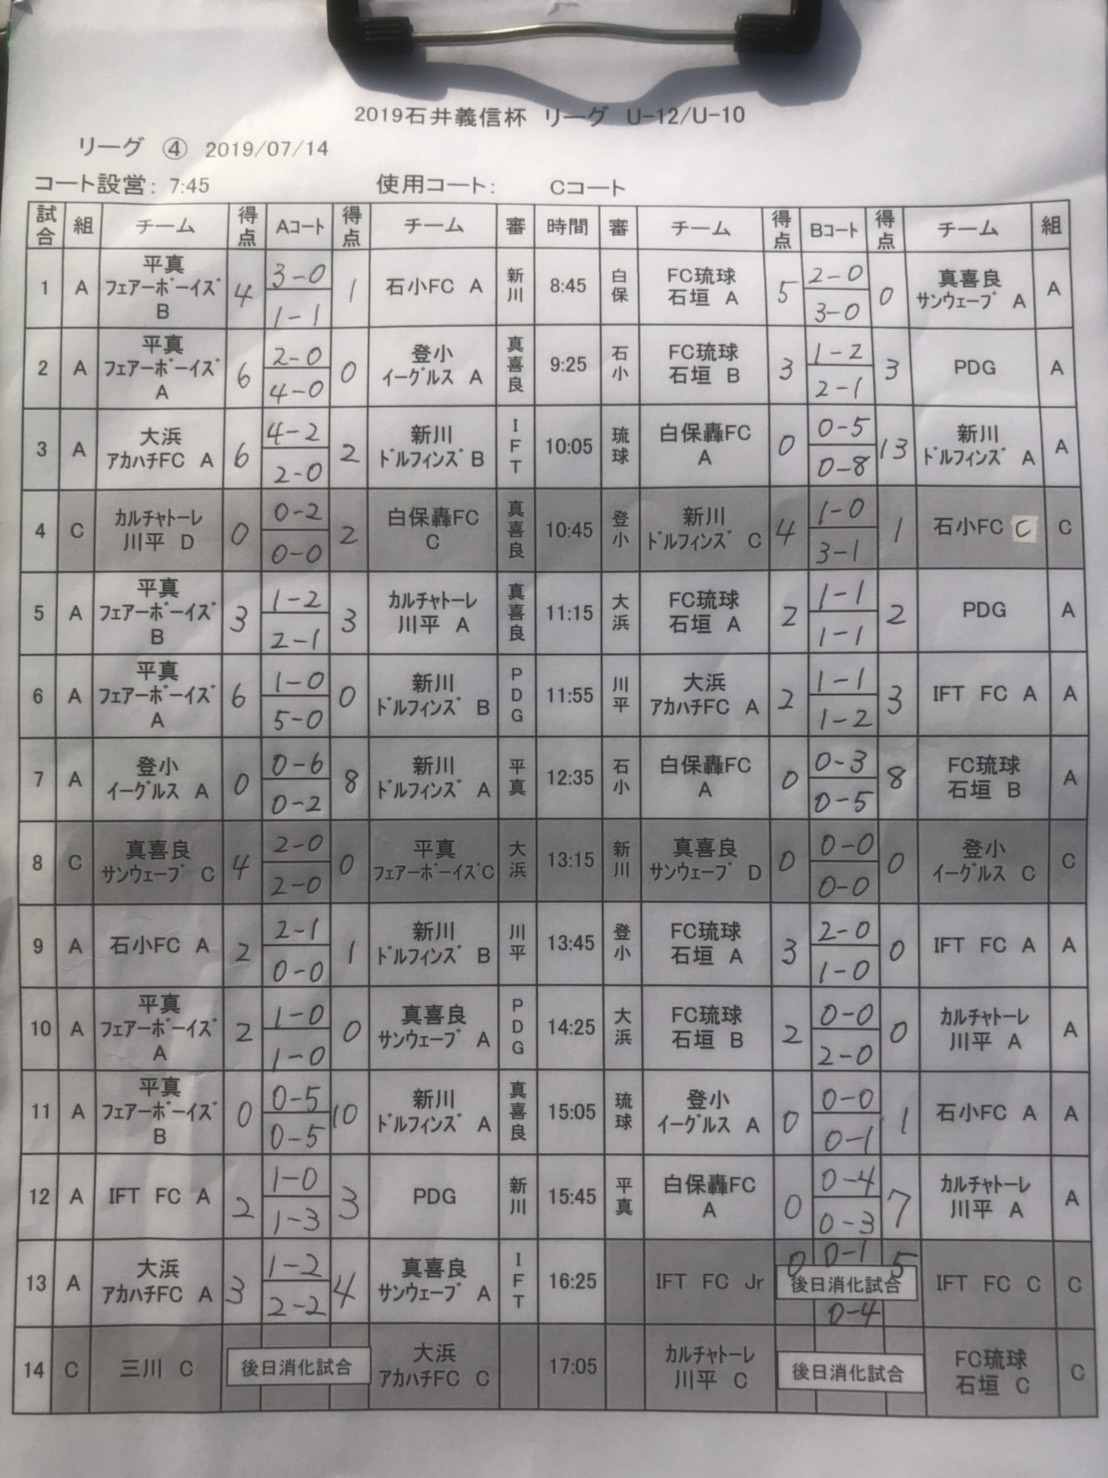 2019石井義信杯 リーグ U-12/U-10
リーグ ④ 2019/07/14
コート設営: 7:45 使用コート: Cコート
試合 組 チーム 得点 Aコート 得点 チーム 審 時間 審 チーム 得点 Bコート 得点 チーム 組
1 A 平真フェアーボーイズB 4 3-0 1-1 1 石小FC A 新川 8:45 白保 FC琉球石垣 A 5 2-0 3-0 0 真喜良サンウェーブ A A
2 A 平真フェアーボーイズA 6 2-0 4-0 0 登小イーグルス A 真喜良 9:25 石小 FC琉球石垣 B 3 1-2 2-1 3 PDG A
3 A 大浜アカハチFC A 6 4-2 2-0 2 新川ドルフィンズB IFT 10:05 琉球 白保轟FC A 0 0-5 0-8 13 新川ドルフィンズ A A
4 C カルチャトーレ川平 D 0 0-2 0-0 2 白保轟FC C 真喜良 10:45 登小 新川ドルフィンズ C 4 1-0 3-1 1 石小FC C C
5 A 平真フェアーボーイズB 3 1-2 2-1 3 カルチャトーレ川平 A 真喜良 11:15 大浜 FC琉球石垣 A 2 1-1 1-1 2 PDG A
6 A 平真フェアーボーイズA 6 1-0 5-0 0 新川ドルフィンズ B PDG 11:55 川平 大浜アカハチFC A 2 1-1 1-2 3 IFT FC A A
7 A 登小イーグルス A 0 0-6 0-2 8 新川ドルフィンズ A 平真 12:35 石小 白保轟FC A 0 0-3 0-5 8 FC琉球石垣 B A
8 C 真喜良サンウェーブ C 4 2-0 2-0 0 平真フェアーボーイズC 大浜 13:15 新川 真喜良サンウェーブ D 0 0-0 0-0 0 登小イーグルス C C
9 A 石小FC A 2 2-1 0-0 1 新川ドルフィンズ B 川平 13:45 登小 FC琉球石垣 A 3 2-0 1-0 0 IFT FC A A
10 A 平真フェアーボーイズA 2 1-0 1-0 0 真喜良サンウェーブ A PDG 14:25 大浜 FC琉球石垣 B 2 0-0 2-0 0 カルチャトーレ川平 A A
11 A 平真フェアーボーイズB 0 0-5 0-5 10 新川ドルフィンズ A 真喜良 15:05 琉球 登小イーグルス A 0 0-0 0-1 1 石小FC A A
12 A IFT FC A 2 1-0 1-3 3 PDG 新川 15:45 平真 白保轟FC A 0 0-4 0-3 7 カルチャトーレ川平 A A
13 A 大浜アカハチFC A 3 1-2 2-2 4 真喜良サンウェーブ A IFT 16:25 IFT FC Jr 0 0-1 後日消化試合 0-4 5 IFT FC C C
14 C 三川 C 後日消化試合 大浜アカハチFC C 17:05 カルチャトーレ川平 C 後日消化試合 FC琉球石垣 C C